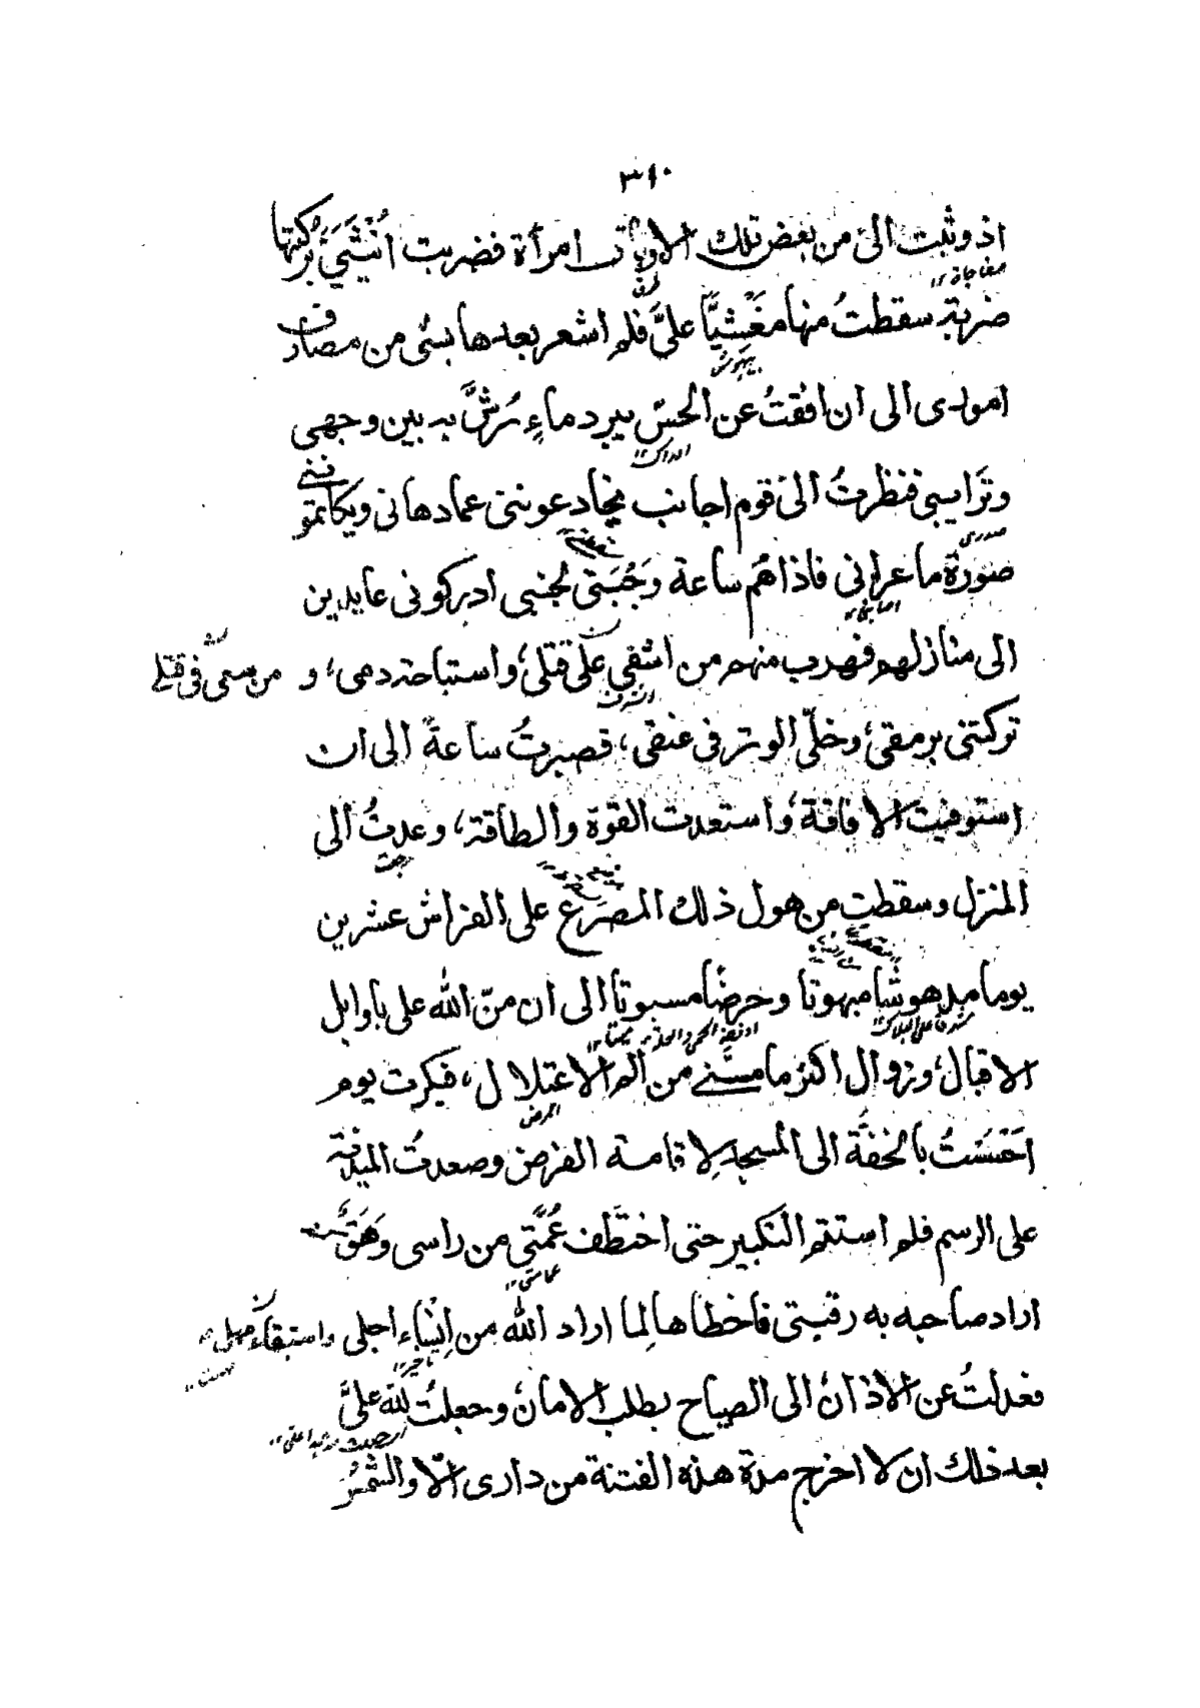 ٣٤٠
اذ وثبت الیّ من بعض تلك الاوقات امرأة فضربت اُنْثَيَيَّ بركبتها
مفاجاة
ضربة سقطتُ منها مغشيًّا علیَّ فلم اشعر بعدها بشی من مصارف
بيهوش
امورى الى ان افقتُ عن الحسّ ببرد ماءٍ تُرشَّ به بين وجهى
ادراك
وتَرايبى فنظرتُ الیٰ قوم اجانب يخادعوننى عمادهانى ويكاتمونني
صورة ما عرانى فاذا هُم ساعة وَجُبَتى لجنبى ادركونى عايدين
اصابنى
الى منازلهم فهرب منهم من اشفى على قتلى، واستباحة دمى، و من سعى فى قتلى
اشرف
تركتنى برمقى، وخلّى الوتر فى عنقى، فصبرتُ ساعةً الى ان
استوفيت الافاقة، واستعدت القوة والطاقة، وعدتُ الى
رجعت
المنزل وسقطت من هول ذلك المصرع على الفراش عشرين
يوما مدهوشا مبهوتا وحرضًا مسبوتا الى ان منّ الله علی باوايل
مشرفا على الهلاك
الاقبال، وزوال اكثر ما مسّنى من الم الاعتلال، فبكرت يوم
المرض
اَحْسَسْتُ بالخفّة الى المسجد لاقامة الفرض وصعدتُ الميذنة
على الرسم فلم استتم التكبير حتى اختطف عُمَّتى من راسى وَهَقٌ
عمامتى
اراد صاحبه به رقبتى فاخطاها لِما اراد الله من اِنْساء اجلى واستبقاء مهلى
تاخير مهلت
فعدلتُ عن الاذان الى الصياح بطلب الامان، وجعلتُ لله علیَّ
بعد ذلك ان لا اخرج مدة هذه الفتنة من دارى الّا والشمسُ